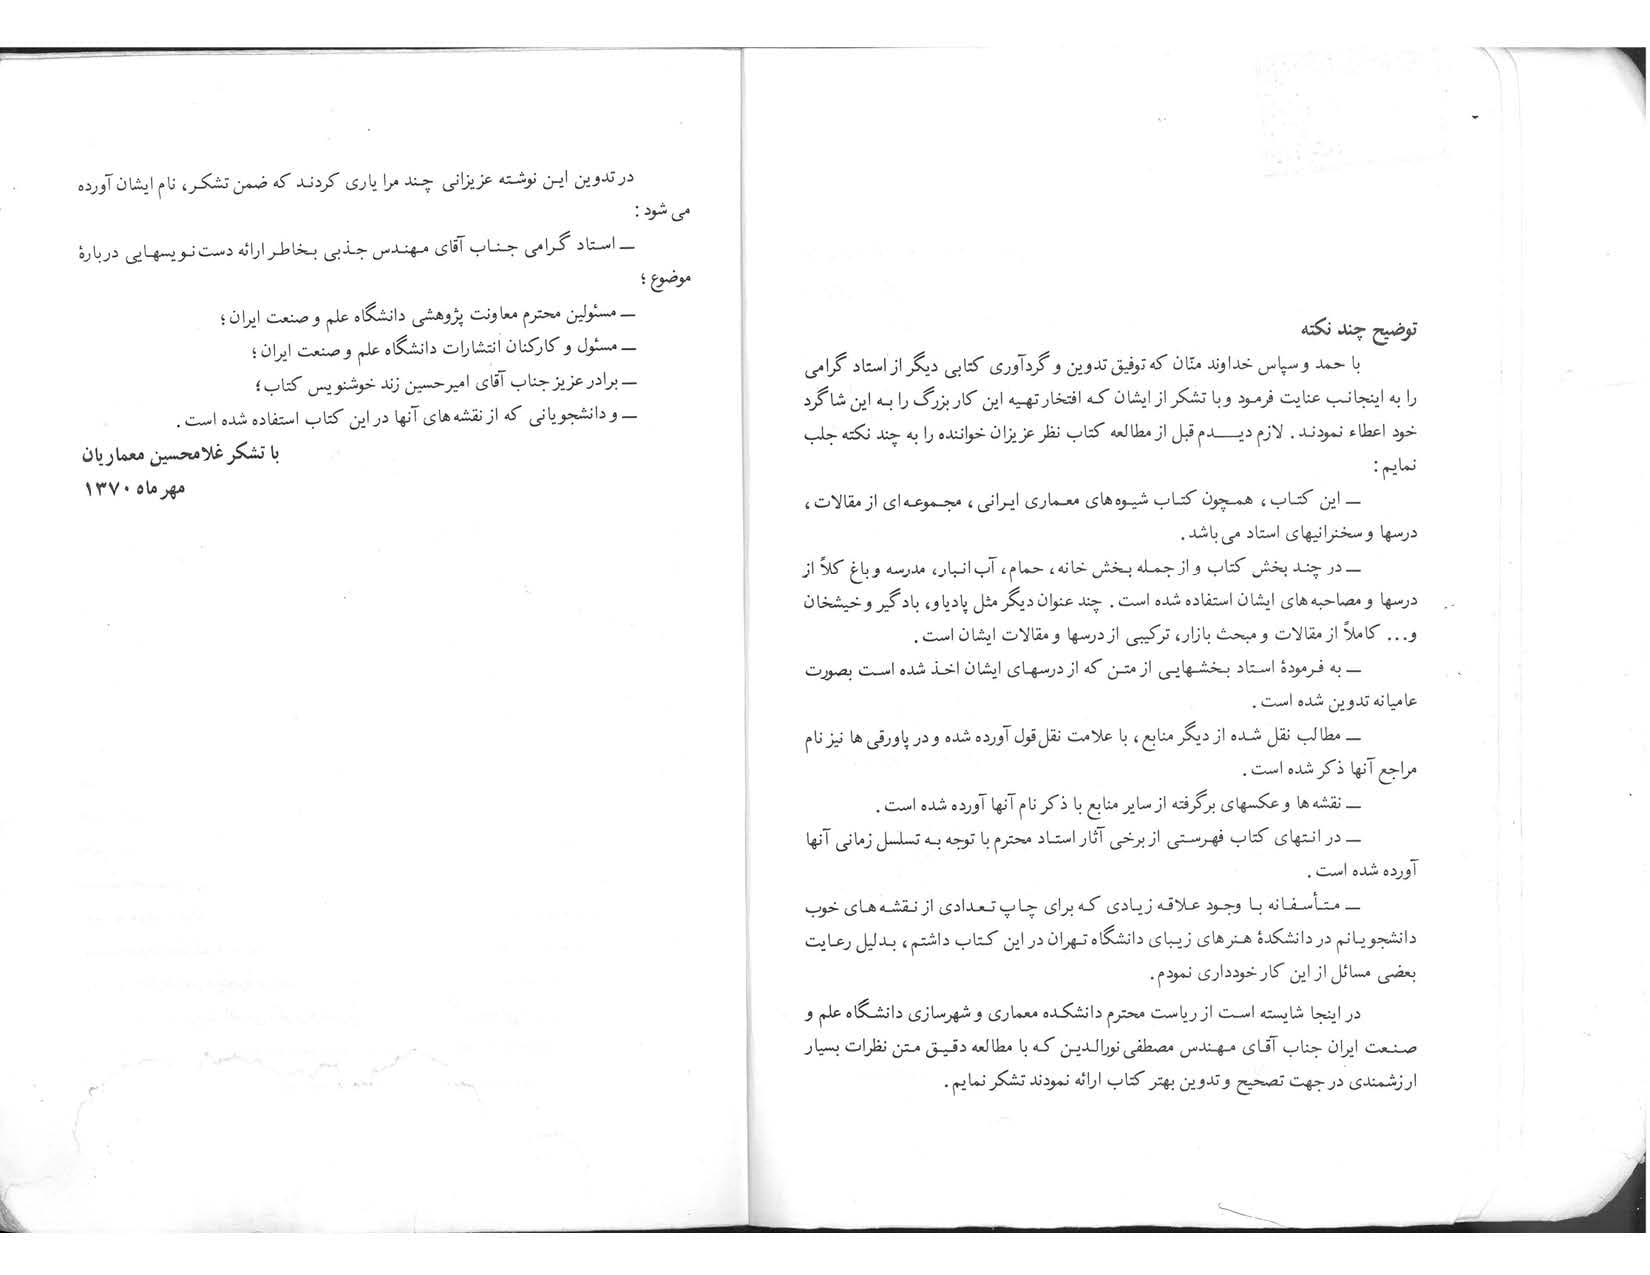 توضیح چند نکته
با حمد و سپاس خداوند منّان که توفیق تدوین و گردآوری کتابی دیگر از استاد گرامی
را به اینجانب عنایت فرمود و با تشکر از ایشان که افتخار تهیه این کار بزرگ را به این شاگرد
خود اعطاء نمودند. لازم دیدم قبل از مطالعه کتاب نظر عزیزان خواننده را به چند نکته جلب
نمایم:
ــ این کتاب، همچون کتاب شیوه‌های معماری ایرانی، مجموعه‌ای از مقالات،
درسها و سخنرانیهای استاد می‌باشد.
ــ در چند بخش کتاب و از جمله بخش خانه، حمام، آب‌انبار، مدرسه و باغ کلاً از
درسها و مصاحبه‌های ایشان استفاده شده است. چند عنوان دیگر مثل پادیاو، بادگیر و خیشخان
و... کاملاً از مقالات و مبحث بازار، ترکیبی از درسها و مقالات ایشان است.
ــ به فرمودهٔ استاد بخشهایی از متن که از درسهای ایشان اخذ شده است بصورت
عامیانه تدوین شده است.
ــ مطالب نقل شده از دیگر منابع، با علامت نقل‌قول آورده شده و در پاورقی‌ها نیز نام
مراجع آنها ذکر شده است.
ــ نقشه‌ها و عکسهای برگرفته از سایر منابع با ذکر نام آنها آورده شده است.
ــ در انتهای کتاب فهرستی از برخی آثار استاد محترم با توجه به تسلسل زمانی آنها
آورده شده است.
ــ متأسفانه با وجود علاقه زیادی که برای چاپ تعدادی از نقشه‌های خوب
دانشجویانم در دانشکدهٔ هنرهای زیبای دانشگاه تهران در این کتاب داشتم، بدلیل رعایت
بعضی مسائل از این کار خودداری نمودم.
در اینجا شایسته است از ریاست محترم دانشکده معماری و شهرسازی دانشگاه علم و
صنعت ایران جناب آقای مهندس مصطفی نورالدین که با مطالعه دقیق متن نظرات بسیار
ارزشمندی در جهت تصحیح و تدوین بهتر کتاب ارائه نمودند تشکر نمایم.
در تدوین این نوشته عزیزانی چند مرا یاری کردند که ضمن تشکر، نام ایشان آورده
می‌شود:
ــ استاد گرامی جناب آقای مهندس جذبی بخاطر ارائه دست‌نویسهایی دربارهٔ
موضوع؛
ــ مسئولین محترم معاونت پژوهشی دانشگاه علم و صنعت ایران؛
ــ مسئول و کارکنان انتشارات دانشگاه علم و صنعت ایران؛
ــ برادر عزیز جناب آقای امیرحسین زند خوشنویس کتاب؛
ــ و دانشجویانی که از نقشه‌های آنها در این کتاب استفاده شده است.
با تشکر غلامحسین معماریان
مهرماه ۱۳۷۰